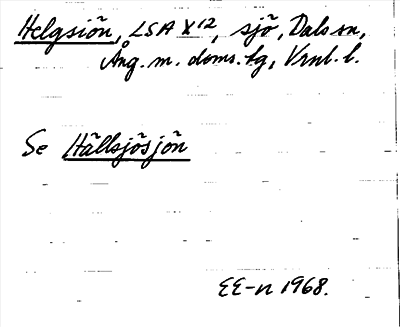 Helgsiön, LSA X12, sjö, Dals sn,
Ång. m. doms. tg, Vrnl. l.
Se Hällsjösjön
EE-n 1968.